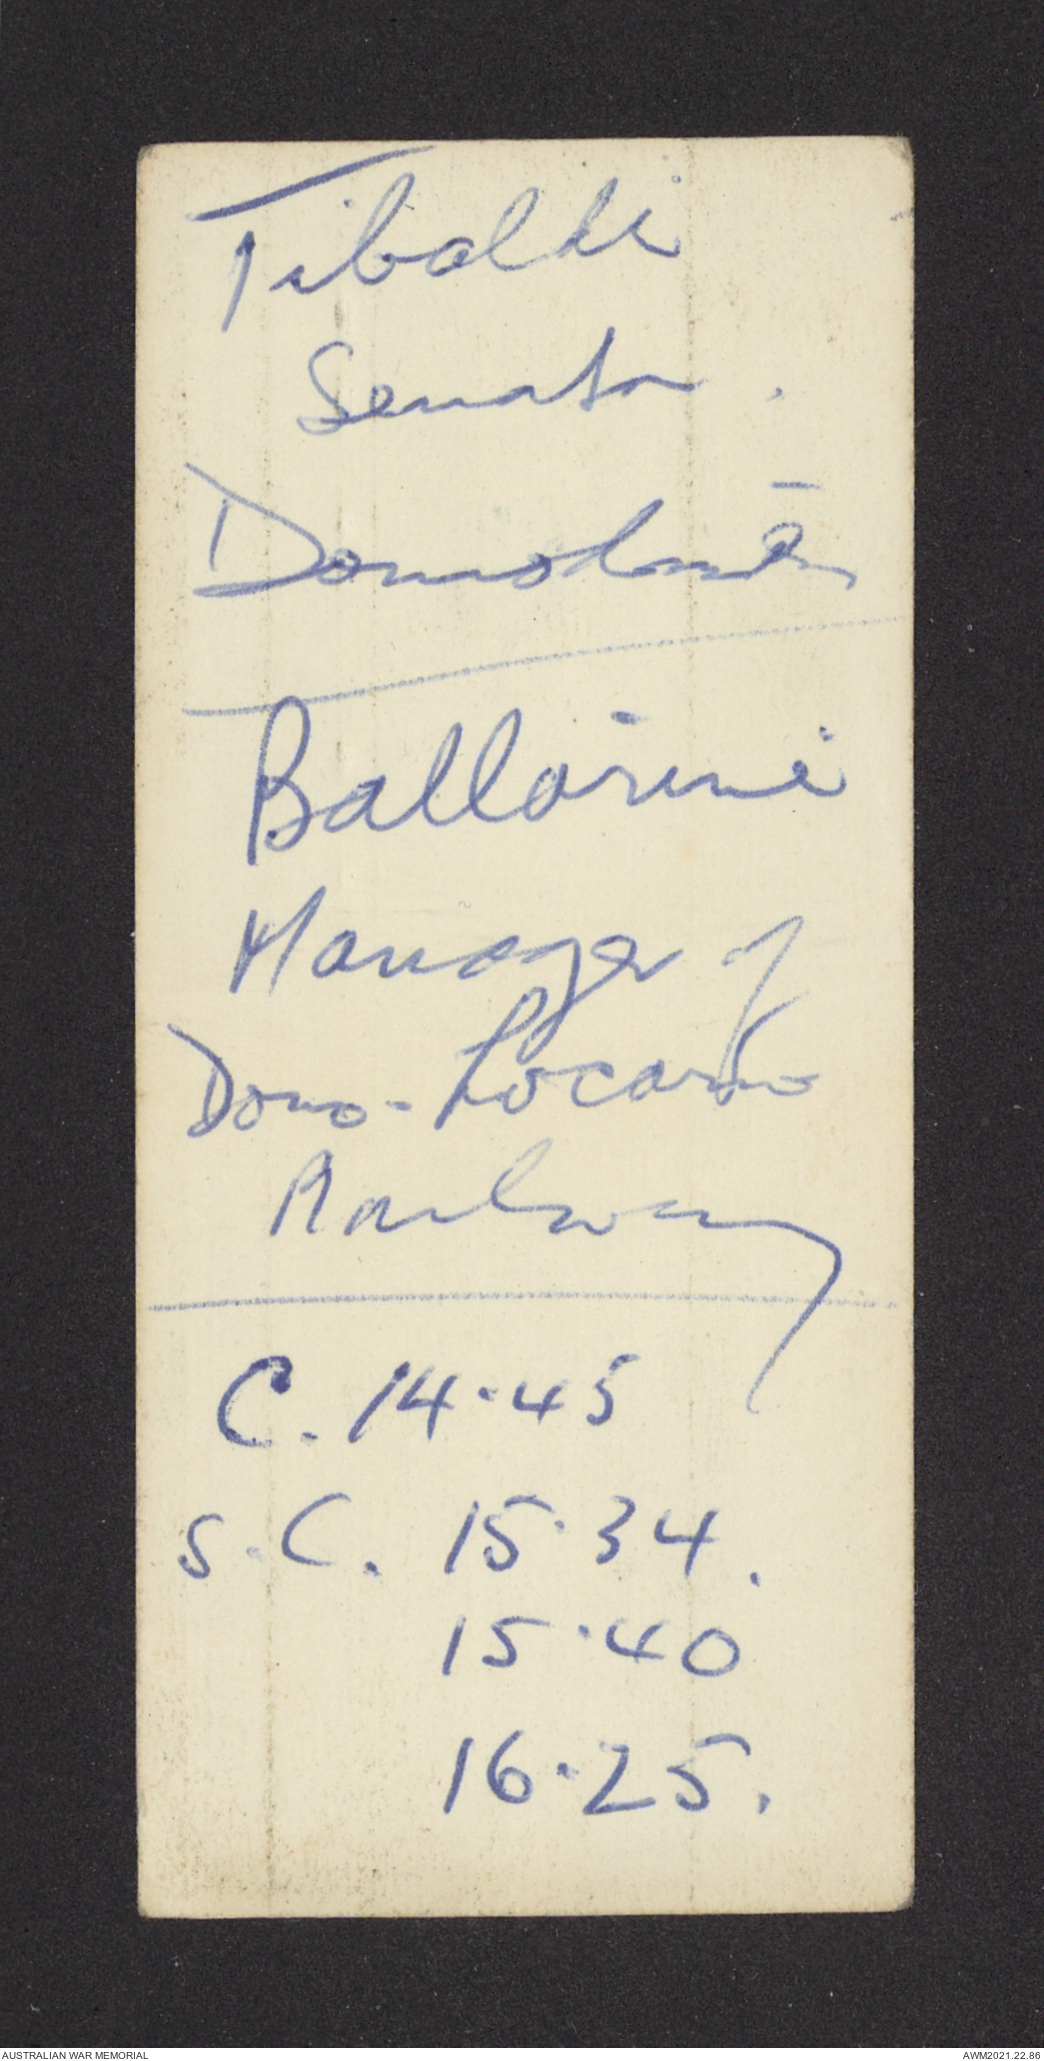 Tibaldi
Senator.
Ballarini
Manager of
Domo-Locarno
Railway
C. 14.45
S.C. 15.34.
15.40
16.25.
AUSTRALIAN WAR MEMORIAL
AWM2021.22.86